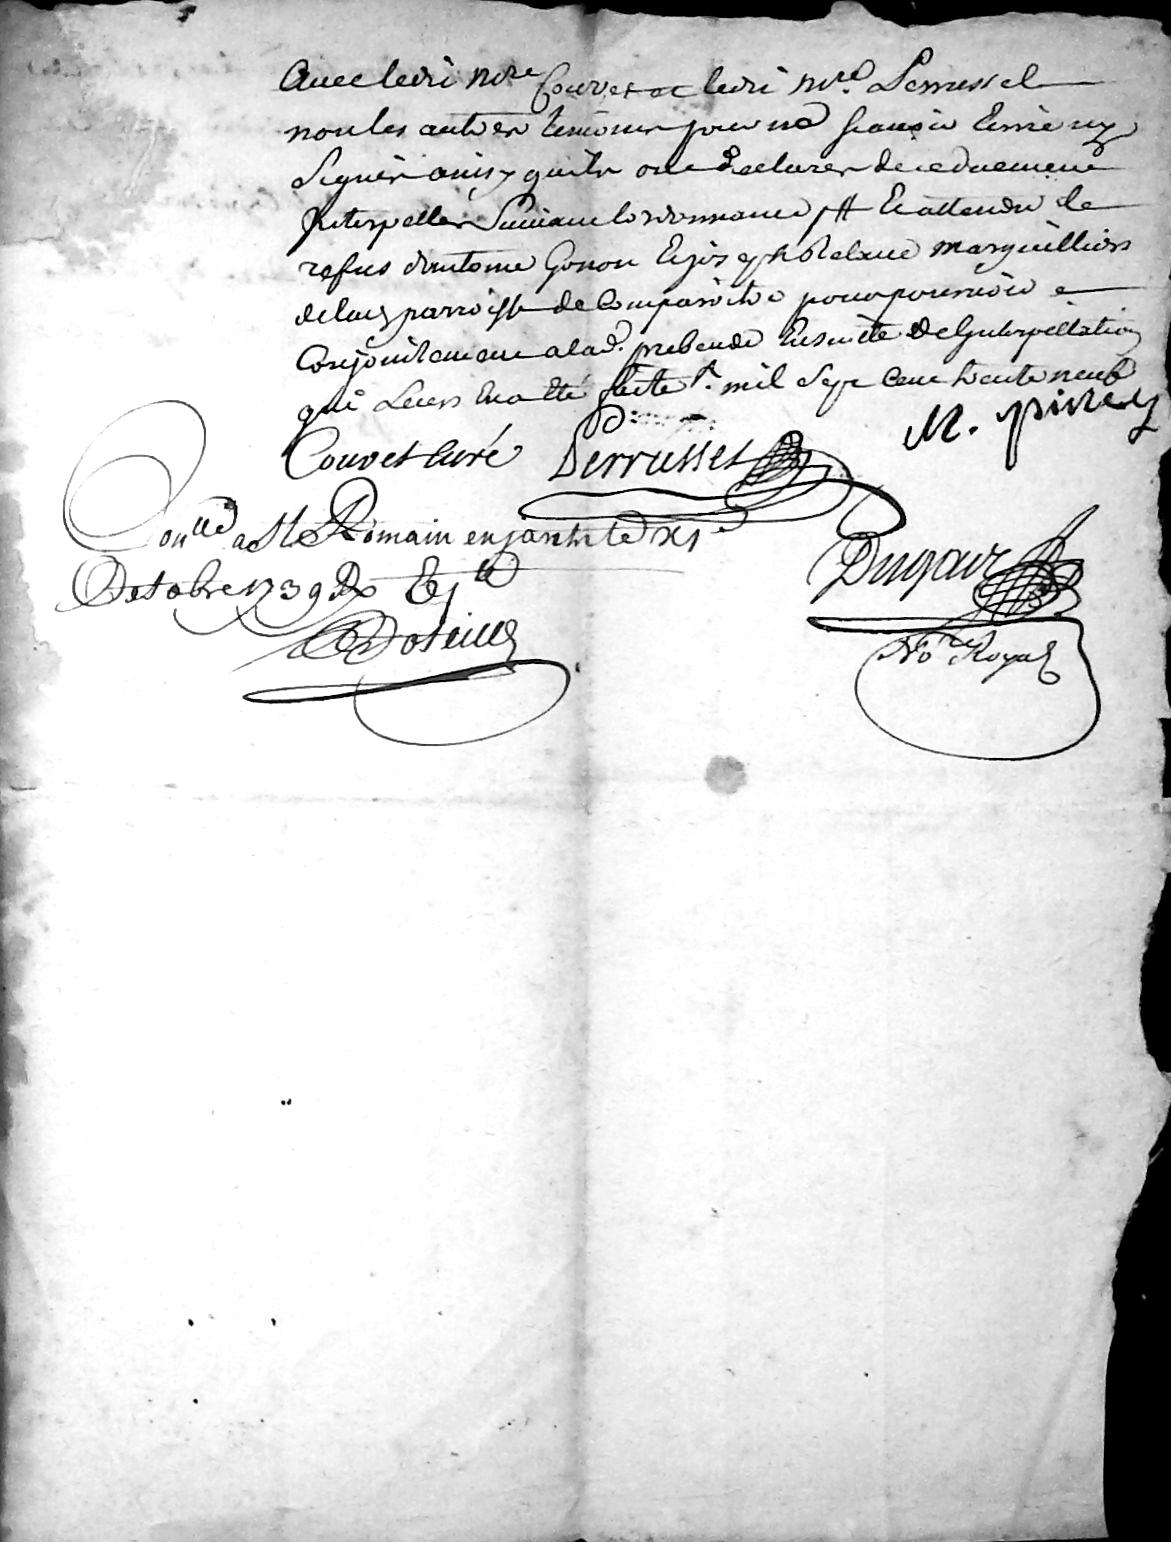 Avec ledit mre Couvet et ledit mre. Perrussel
non les autres temoins pour ne sçavoir Ecrire ny
Signer ainsy quils ont declarer de ce duement
Interpeller Suivant lordonnance Et attendu le
refus dantoine Gonon Et joseph marguilliers
de lad. parroisse de Comparoitre pour pourvoir
Conjointement a lad. prebende Ensuite de Linterpellation
qui Leurs En a Eté faite mil Sept Cent trente neuf
M. piney
Couvet Curé Perrusset
Conllé a St Romain en jarest le xj
Octobre 1739
Dugair
Nore Royal